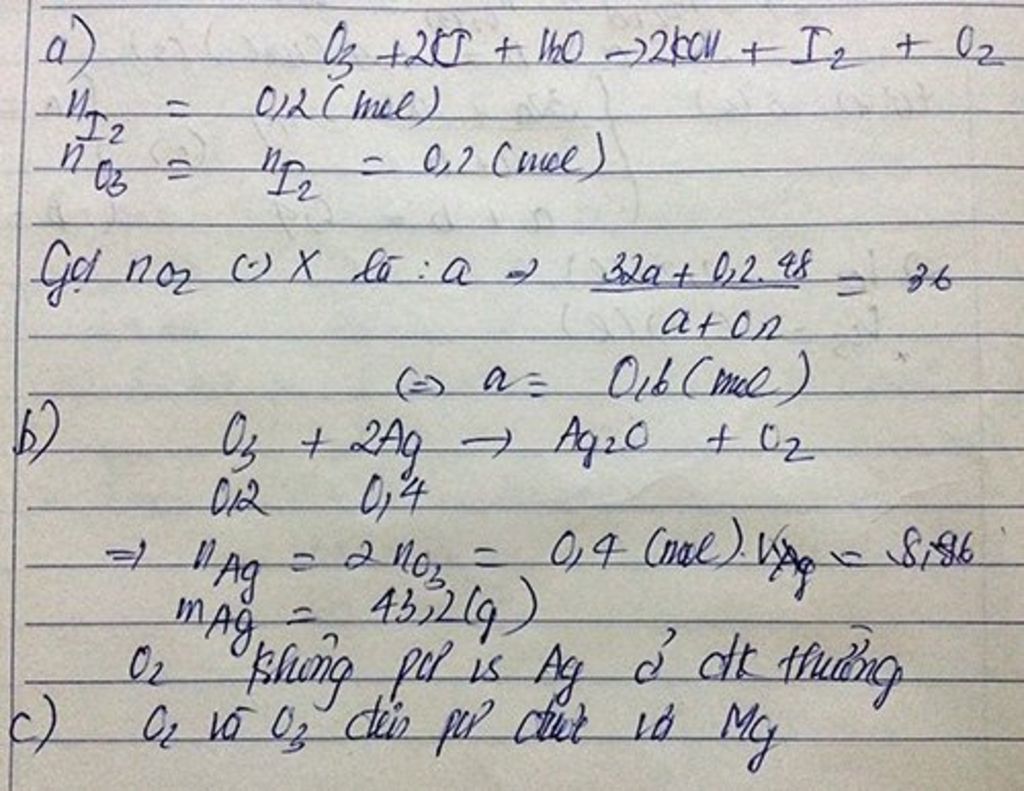 a) O3 + 2KI + H2O → 2KOH + I2 + O2
nI2 = 0,2 (mol)
nO3 = nI2 = 0,2 (mol)
Gọi nO2 (-) X là : a => 32a + 0,2.48 / a + 0,2 = 36
(=) a = 0,6 (mol)
b) O3 + 2Ag → Ag2O + O2
0,2 0,4
=> nAg = 2nO3 = 0,4 (mol). VAg = 8,96
mAg = 43,2 (g)
O2 không pư vs Ag ở đk thường
c) O2 và O3 đều pư được với Mg